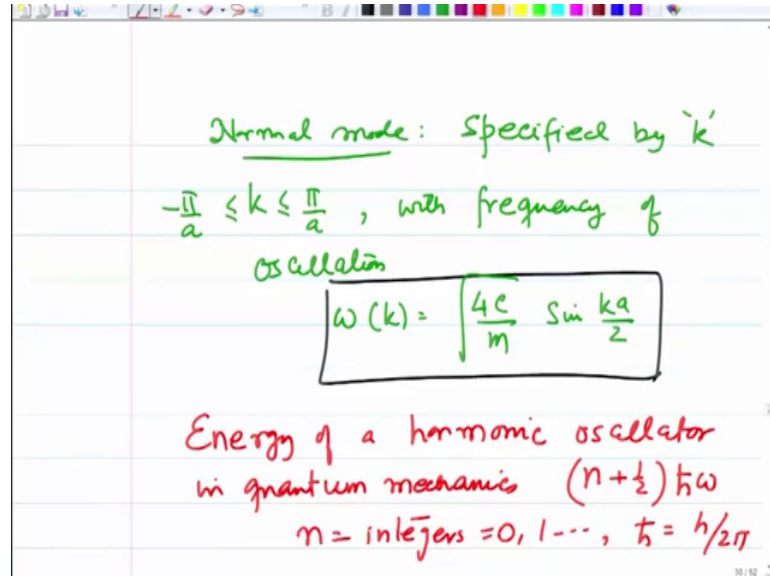 Normal mode: Specified by 'k'
-π/a ≤ k ≤ π/a, with frequency of
oscillation
ω(k) = √(4c/m) Sin ka/2
Energy of a harmonic oscillator
in quantum mechanics (n+½)ħω
n = integers = 0, 1---, ħ = h/2π
30/52